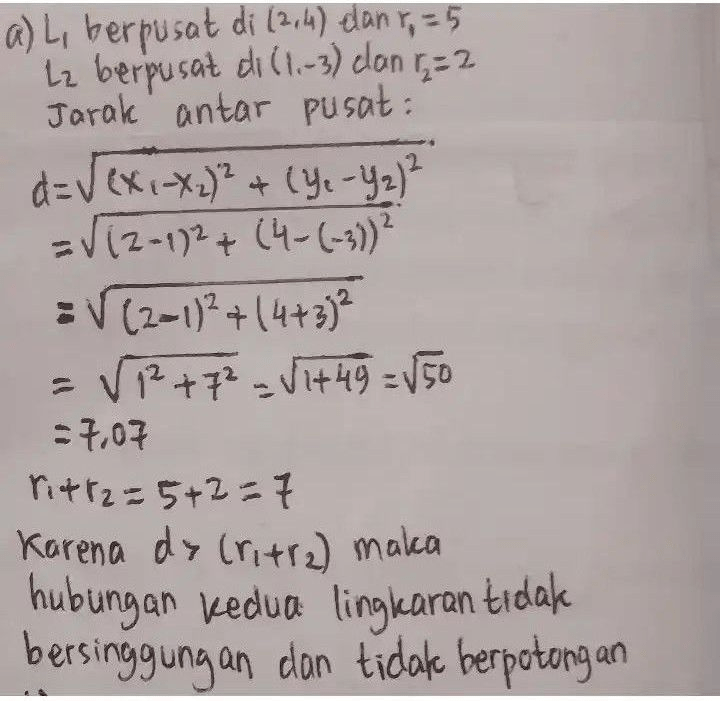 a) L₁ berpusat di (2,4) dan r₁ = 5
L2 berpusat di (1,-3) dan r₂ = 2
Jarak antar pusat :
d = √((x₁-x₂)² + (y₁-y₂)²)
= √((2-1)² + (4-(-3))²)
= √((2-1)² + (4+3)²)
= √(1² + 7²) = √(1+49) = √50
= 7,07
r₁+r₂ = 5+2 = 7
Karena d > (r₁+r₂) maka
hubungan kedua lingkaran tidak
bersinggungan dan tidak berpotongan